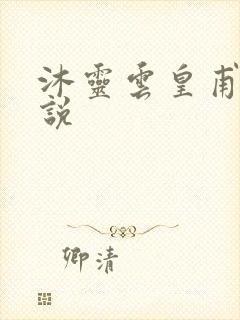 沐靈雲皇甫
說
卿清